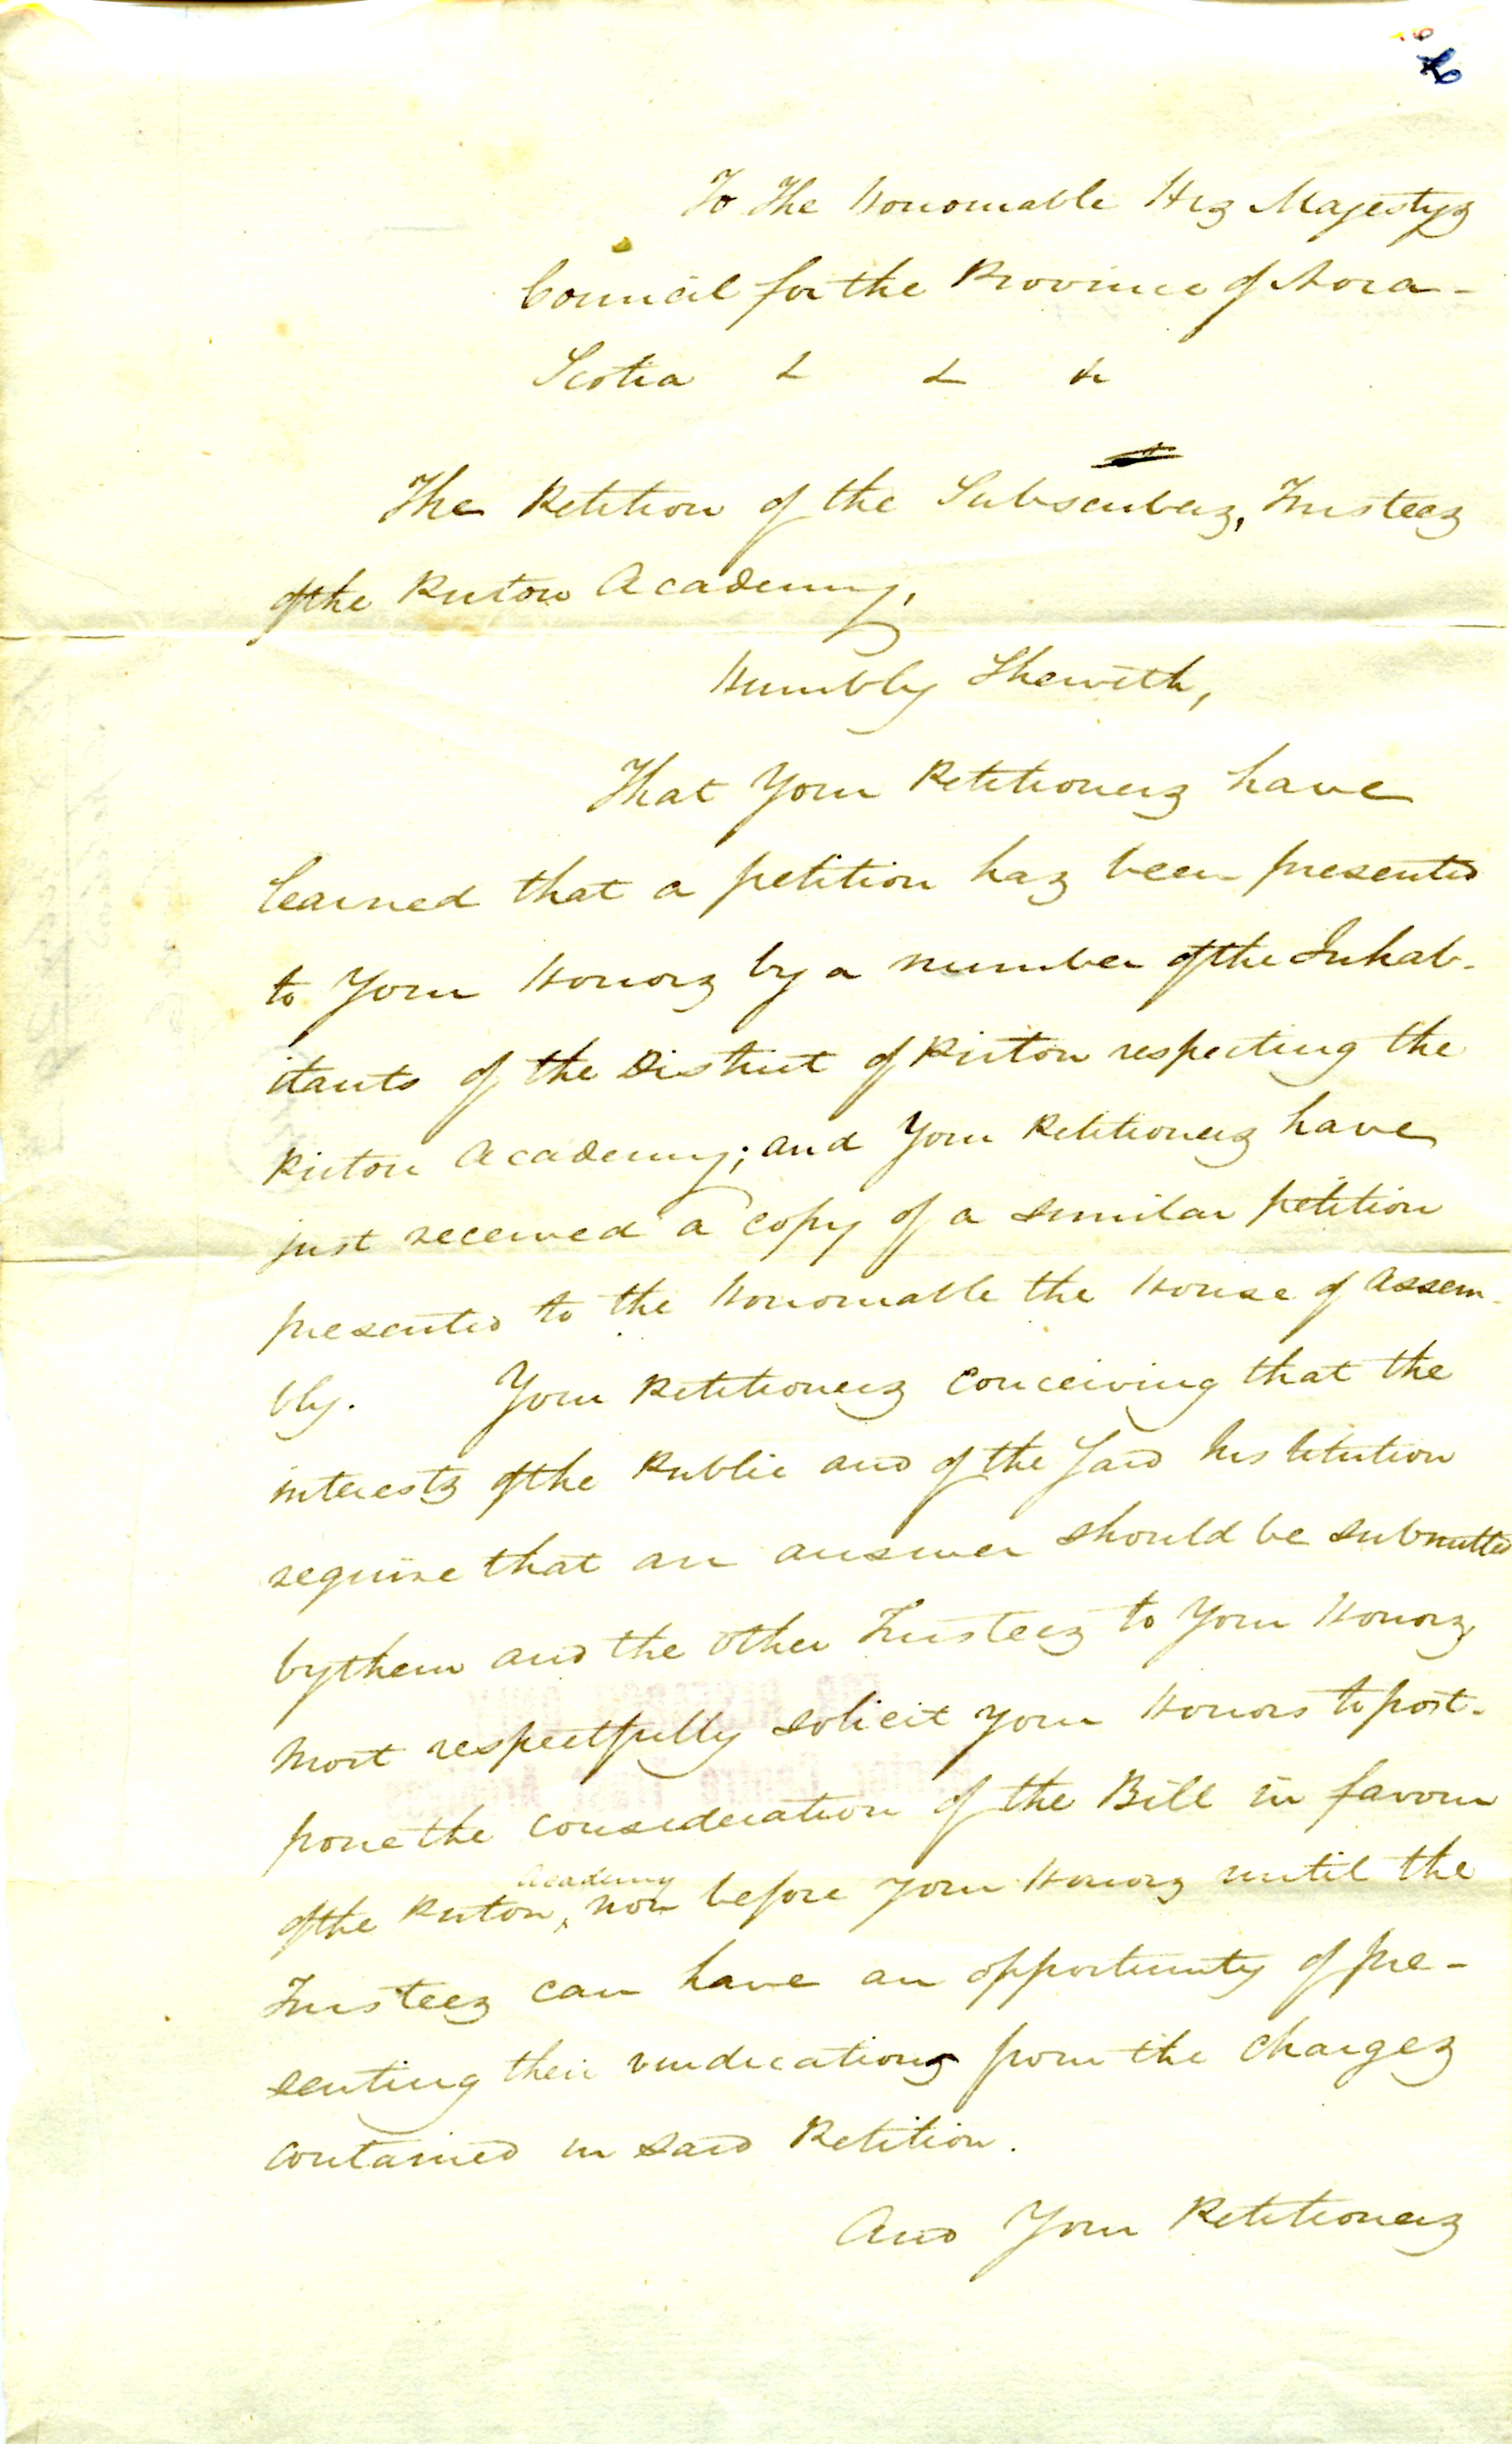 To The Honourable His Majestys
Council for the Province of Nova-
Scotia & & &c
The Petition of the Subscribers, Trustees
of the Pictou Academy,
Humbly Sheweth,
That Your Petitioners have
learned that a petition has been presented
to Your Honors by a number of the Inhab-
itants of the District of Pictou respecting the
Pictou Academy; and Your Petitioners have
just received a copy of a similar petition
presented to the Honourable the House of Assem-
bly. Your Petitioners conceiving that the
interests of the Public and of the Said Institution
require that an answer should be submitted
by them and the other Trustees to Your Honors,
Most respectfully solicit your Honors to post-
pone the consideration of the Bill in favour
of the Pictou Academy now before your Honors until the
Trustees can have an opportunity of pre-
senting their vindications from the charges
contained in said Petition.
And Your Petitioners